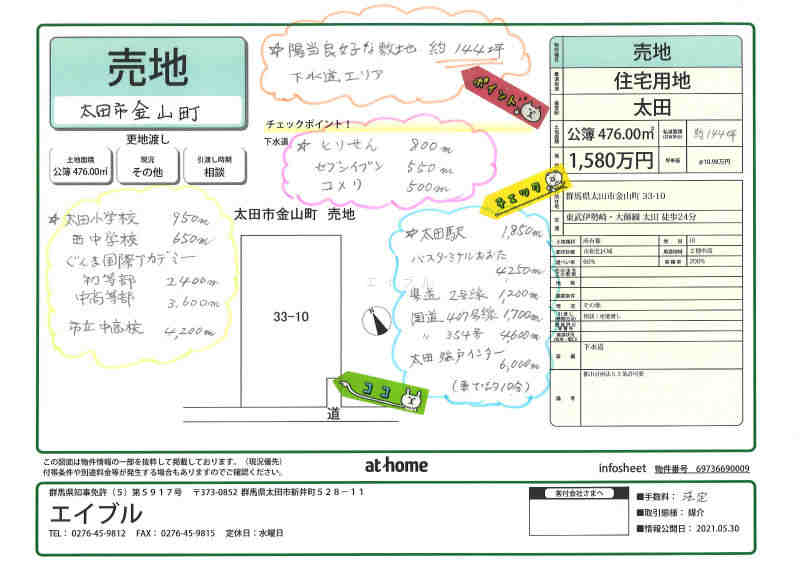 売地
太田市金山町
更地渡し
土地面積
公簿 476.00㎡
現況
その他
引渡し時期
相談
☆陽当良好な敷地 約144坪
下水道エリア
ポイント
チェックポイント！
下水道
☆とりせん 800m
セブンイレブン 550m
コメリ 500m
チェック
☆太田小学校 950m
西中学校 650m
ぐんま国際アカデミー
初等部 2,400m
中高等部 3,600m
市立中高校 4,200m
太田市金山町 売地
33-10
エイブル
道
ココ
☆太田駅 1,850m
バスターミナルおおた
4,250m
県道 2号線 1,200m
国道 407号線 1,700m
〃 354号 4600m
太田強戸インター
6,000m
(車で約10分)
売地
住宅用地
太田
公簿 476.00㎡
約144坪
1,580万円
@10.98万円
群馬県太田市金山町 33-10
東武伊勢崎・大師線 太田 徒歩24分
所有権
市街化区域
60%
200%
その他
相談 / 更地渡し
下水道
備考
この図面は物件情報の一部を抜粋して掲載しております。（現況優先）
付帯条件や別途料金等が発生する場合もありますのでご確認ください。
at home
infosheet 物件番号 69736690009
群馬県知事免許（5）第5917号 〒373-0852 群馬県太田市新井町528－11
エイブル
TEL： 0276-45-9812 FAX： 0276-45-9815 定休日：水曜日
客付会社さまへ
■手数料： 法定
■取引態様： 媒介
■情報公開日： 2021.05.30